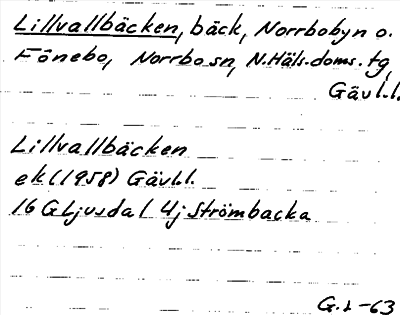 Lillvallbäcken, bäck, Norrbobyn o.
Fönebo, Norrbo sn, N.Häls.doms.tg,
Gävl.l.
Lillvallbäcken
ek (1958) Gävl.l.
16 G Ljusdal 4j Strömbacka
-63